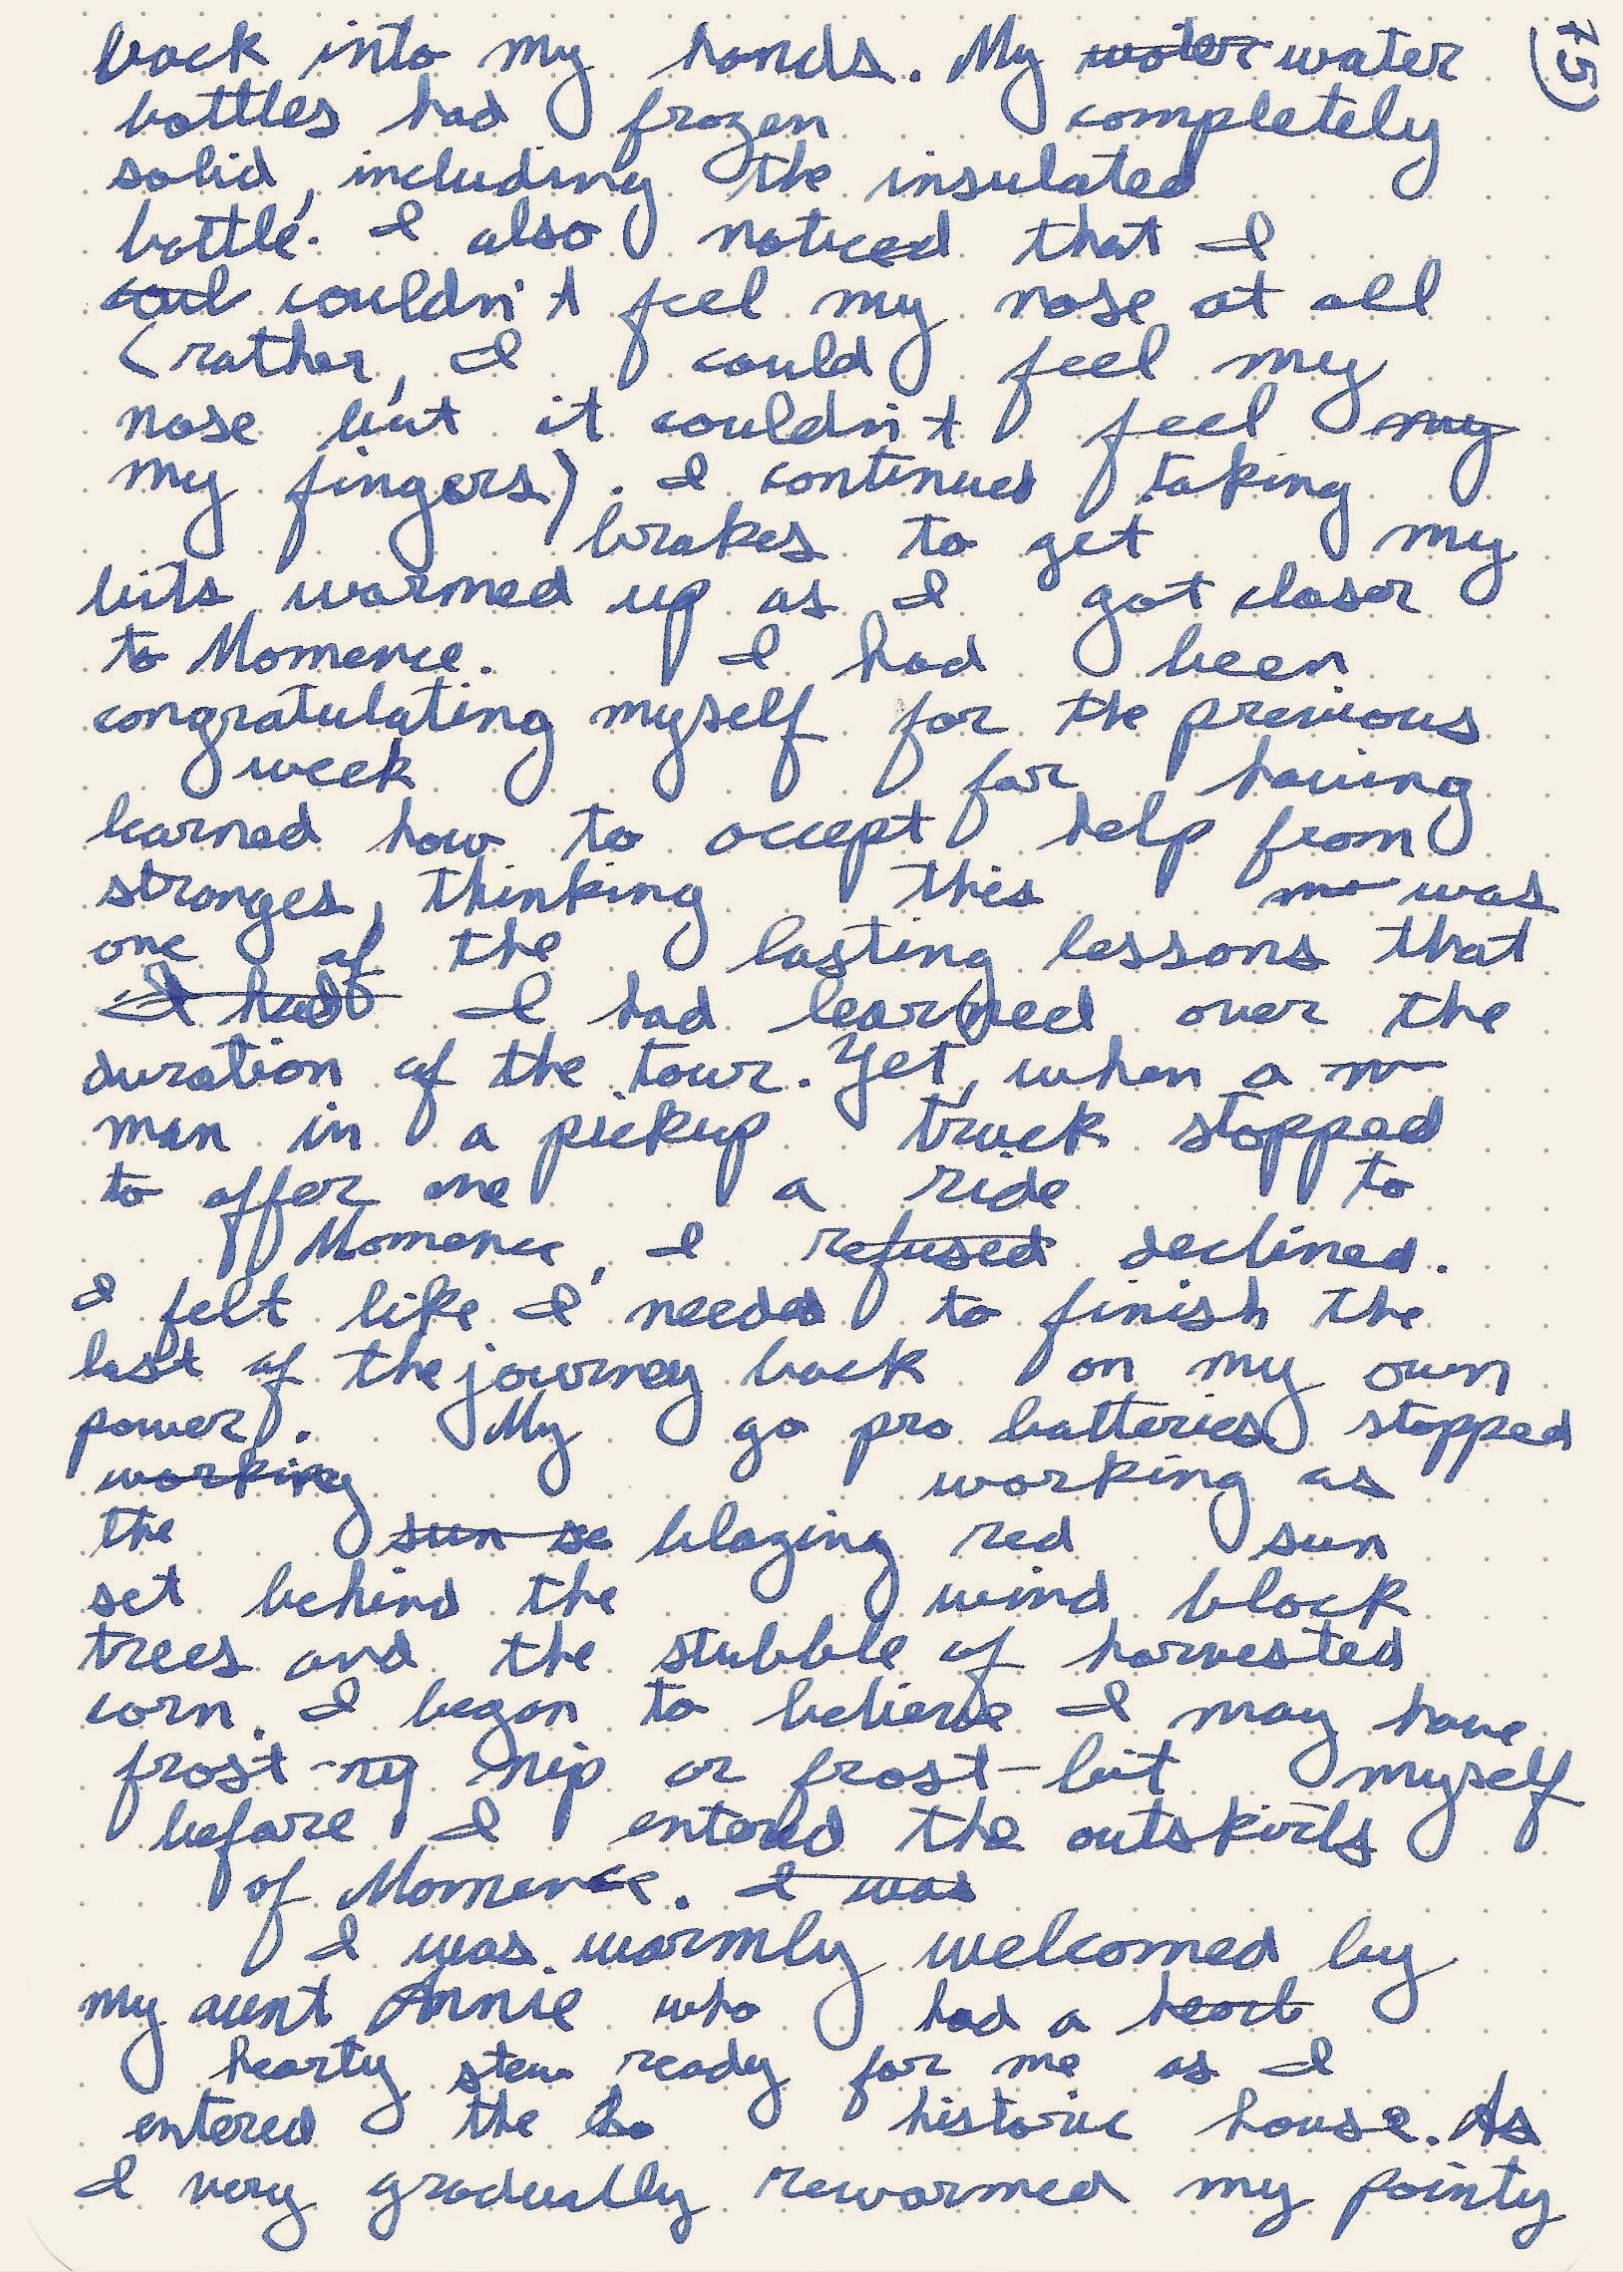 back into my hands. My water water
bottles had frozen completely
solid, including the insulated
bottle. I also noticed that I
coul couldn't feel my nose at all
(rather, I could feel my
nose but it couldn't feel my
my fingers). I continued taking
brakes to get my
bits warmed up as I got closer
to Momence. I had been
congratulating myself for the previous
week for having
learned how to accept help from
stranges, thinking this mo was
one of the lasting lessons that
I had I had learned over the
duration of the tour. Yet, when a m
man in a pickup truck stopped
to offer me a ride to
Momence, I refused declined.
I felt like I needed to finish the
last of the journey back on my own
power. My go pro batteries stopped
working working as
the sun se blazing red sun
set behind the wind block
trees and the stubble of harvested
corn. I began to believe I may have
frost-ny nip or frost-bit myself
before I entered the outskirts
of Momence. I was
I was warmly welcomed by
my aunt Annie who had a heart
hearty stew ready for me as I
entered the ho historic house. As
I very gradually rewarmed my pointy